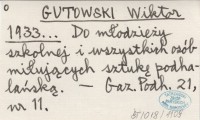 GUTOWSKI Wiktor
1933... Do młodzieży
szkolnej i wszystkich osób
miłujących sztukę podha-
lańską. — Gaz. Podh. 21,
nr 11.